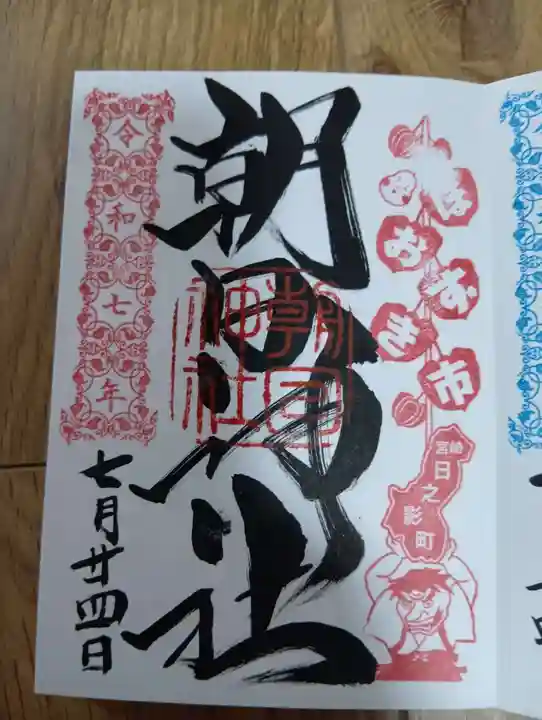 ほおずき市
宮崎
日之影町
朝日神社
朝日
神社
令和七年
七月廿四日